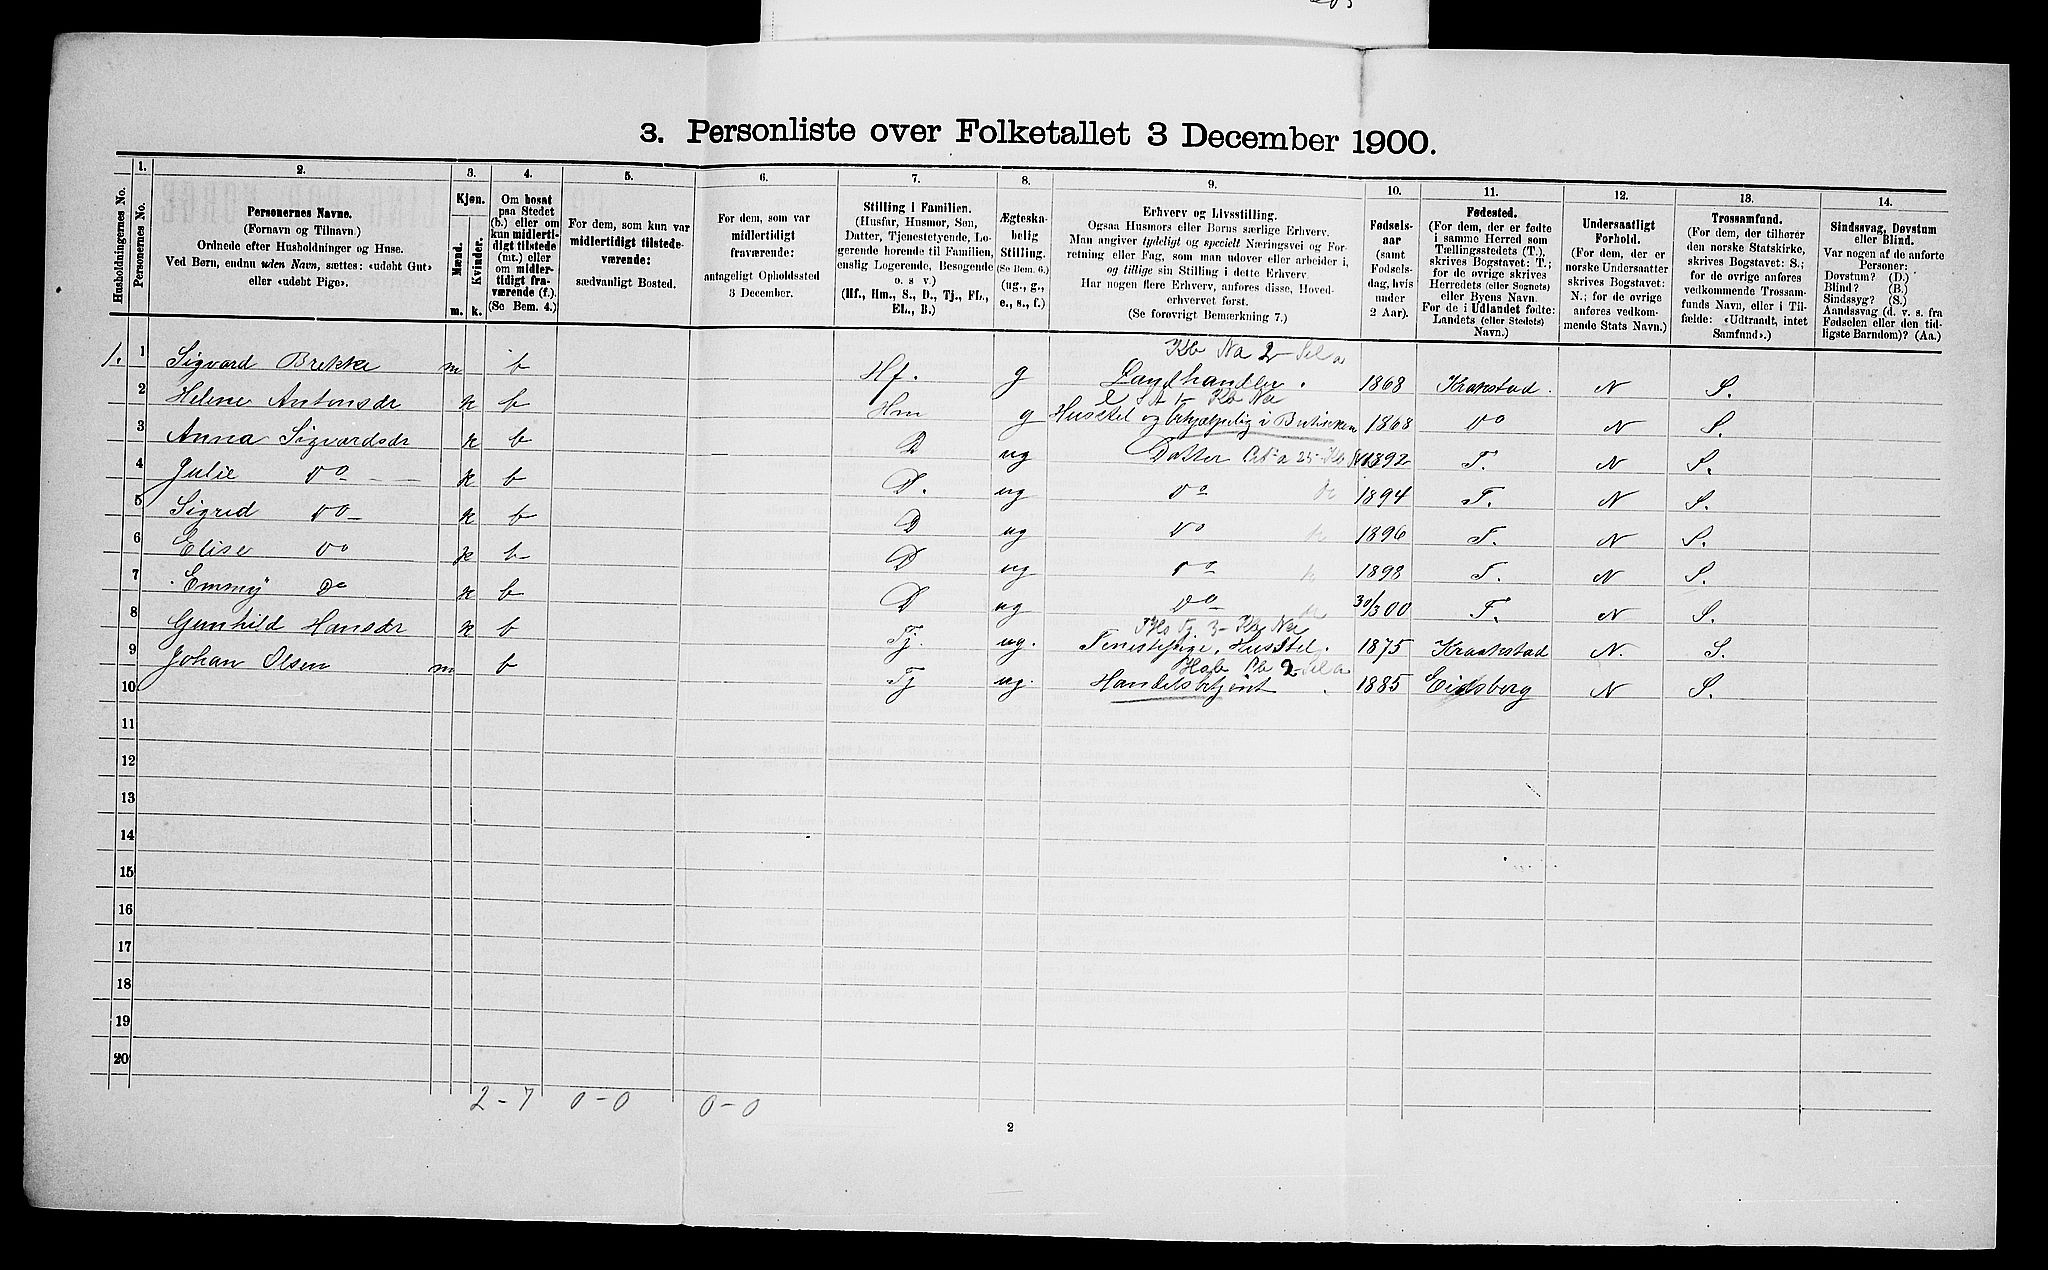 3. Personliste over Folketallet 3 December 1900.
Husholdningernes No.
1.
Personernes No.
2.
Personernes Navne.
(Fornavn og Tilnavn.)
Ordnede efter Husholdninger og Huse.
Ved Børn, endnu uden Navn, sættes: «udøbt Gut»
eller «udøbt Pige».
3.
Kjøn.
Mænd.
Kvinder.
m. k.
4.
Om bosat
paa Stedet
(b.) eller om
kun midlerti-
digt tilstede
(mt.) eller
om midler-
tidigt fra-
værende (f.).
(Se Bem. 4.)
5.
For dem, som kun var
midlertidigt tilstede-
værende:
sædvanligt Bosted.
6.
For dem, som var
midlertidigt
fraværende:
antageligt Opholdssted
3 December.
7.
Stilling i Familien.
(Husfar, Husmor, Søn,
Datter, Tjenestetyende, Lo-
gerende hørende til Familien,
enslig Logerende, Besøgende
o. s. v.)
(Hf., Hm., S., D., Tj., Fl.,
El., B.)
8.
Ægteska-
belig
Stilling.
(Se Bem. 6.)
(ug., g.,
e., s., f.)
9.
Erhverv og Livsstilling.
Ogsaa Husmors eller Børns særlige Erhverv.
Man angiver tydeligt og specielt Næringsvei og For-
retning eller Fag, som man udover eller arbeider i,
og tillige sin Stilling i dette Erhverv.
Har nogen flere Erhverv, anføres disse, Hoved-
erhvervet først.
(Se forøvrigt Bemærkning 7.)
10.
Fødsels-
aar
(samt
Fødsels-
dag, hvis
under
2 Aar).
11.
Fødested.
(For dem, der er fødte
i samme Herred som
Tællingsstedets (T.),
skrives Bogstavet: T.;
for de øvrige skrives
Herredets (eller Sognets)
eller Byens Navn.
For de i Udlandet fødte:
Landets (eller Stedets)
Navn.)
12.
Undersaatligt
Forhold.
(For dem, der er
norske Undersaatter
skrives Bogstavet:
N.; for de øvrige
anføres vedkom-
mende Stats Navn.)
13.
Trossamfund.
(For dem, der tilhører
den norske Statskirke,
skrives Bogstavet: S.;
for de øvrige anføres
vedkommende Trossam-
funds Navn, eller i Til-
fælde: «Udtraadt, intet
Samfund».)
14.
Sindssvag, Døvstum
eller Blind.
Var nogen af de anførte
Personer:
Døvstum? (D.)
Blind? (B.)
Sindssyg? (S.)
Aandssvag (d. v. s. fra
Fødselen eller den tid-
ligste Barndom)? (Aa.)
Kb Na 2
1. 1 Sigvard Brekke m b Hf. g Landhandler. 1868 Krakstad. N S.
2 Helene Antonsdr k b Hm g Husstel og behjælpelig i Butikken 1868 Do N S.
3 Anna Sigvardsdr k b D ug Datter 1892 T. N S.
4 Julie Do k b D. ug Do 1894 T. N S.
5 Sigrid Do k b D ug Do 1896 T. N S.
6 Elise Do k b D ug Do 1898 T. N S.
7 Emmy Do k b D ug Do 30/3 00 T. N S.
8 Gunhild Hansdr k b Tj. ug. Tenestepige, Husstel. 1875 Kraakstad N. S.
9 Johan Olsen m b Tj ug. Handelsbetjent 1885 Eidsberg N S.
10
11
12
13
14
15
16
17
18
19
20
2 - 7 0 - 0 0 - 0
2